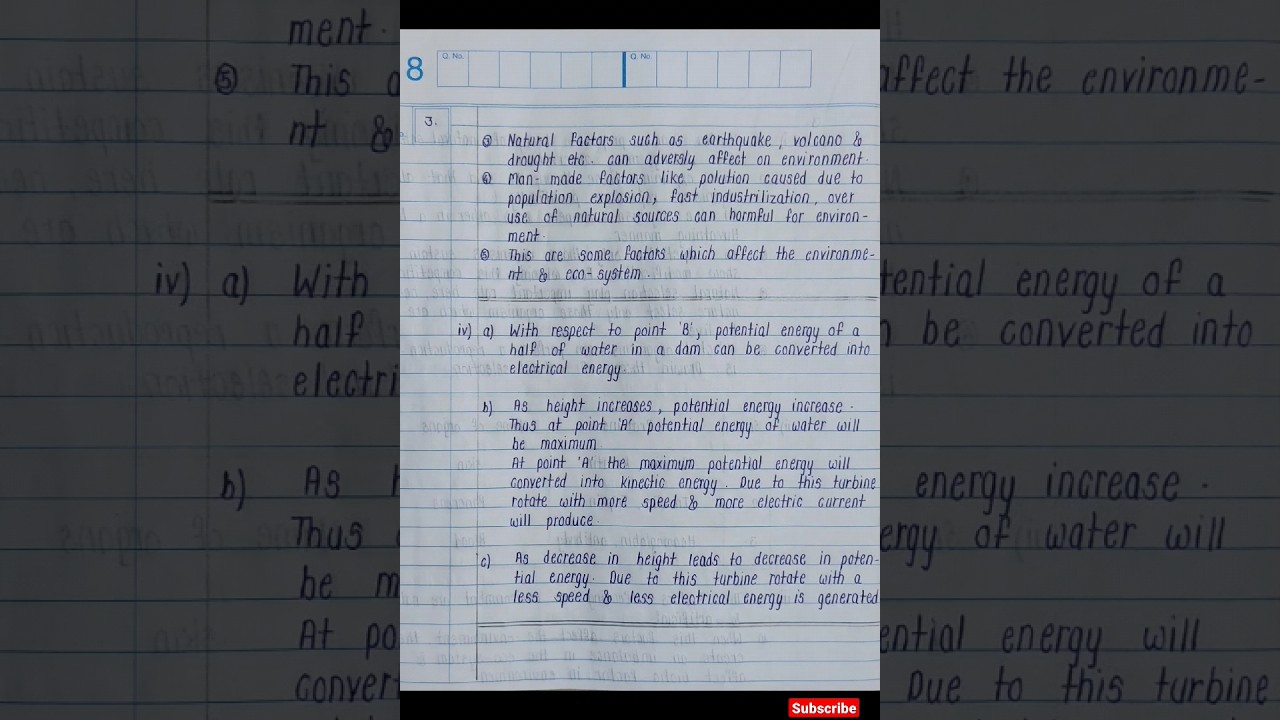 8
Q. No.
Q. No.
3.
③ Natural factors such as earthquake, volcano &
drought etc. can adversly affect on environment.
④ Man-made factors like polution caused due to
population explosion, fast industrilization, over
use of natural sources can harmful for environ-
ment.
⑤ This are some factors which affect the environme-
nt & eco-system.
iv) a) With respect to point 'B', potential energy of a
half of water in a dam can be converted into
electrical energy.
b) As height increases, potential energy increase.
Thus at point 'A' potential energy of water will
be maximum
At point 'A' the maximum potential energy will
converted into kinectic energy. Due to this turbine
rotate with more speed & more electric current
will produce.
c) As decrease in height leads to decrease in poten-
tial energy. Due to this turbine rotate with a
less speed & less electrical energy is generated
Subscribe
ment.
⑤ This a
affect the environme-
nt &
iv) a) With
tential energy of a
half
be converted into
electri
b) As
energy increase.
Thus
ergy of water will
be m
At po
ential energy will
conver
Due to this turbine